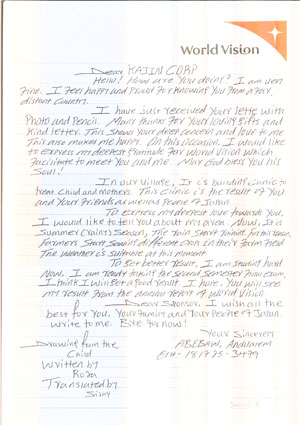 World Vision
Dear KAJIN CORP
Hello! How are you doing? I am very
fine. I feel happy and proud for knowing you from a far
distant country.
I have just received your letter with
Photo and pencil. Many thanks for your loving gifts and
Kind letter. This shows your deep concern and love to me
This also makes me happy. On this occasion, I would like
to express my deepest gratitude for World Vision which
facilitate to meet you and me. May God bless you his
soul!
In our village, It is building clinic to
treat child and mothers. This clinic is the result of you
and your friends as well as People of Japan
To express my deepest love towards you,
I would like to tell you about my area. Now, it is
summer (rainy) season, The rain start
farmers start sowing different crop in their farm field
The weather is suitable at this moment
To get better your, I am studying hard
Now. I am ready taking the second semester exam,
I think I will get a good result. I hope, you will see
my result from the annual report of World Vision
Dear Sponsor, I wish all the
best for you, Your family and your People of Japan.
write to me. Bye for now!
Your Sincerely
Drawing from the
Child
ABEBAW, Andualem
ETH-181725-3479
written by
Roza
Translated by